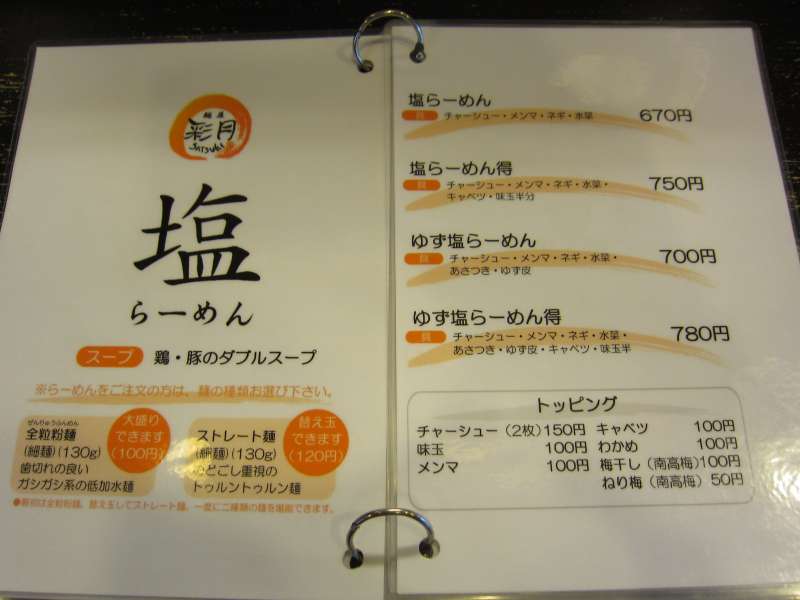 麺屋
彩月
SATSUKI
塩
らーめん
スープ 鶏・豚のダブルスープ
※らーめんをご注文の方は、麺の種類お選び下さい。
ぜんりゅうふんめん
全粒粉麺
(細麺)(130g)
歯切れの良い
ガシガシ系の低加水麺
大盛り
できます
(100円)
ストレート麺
(細麺)(130g)
のどごし重視の
トゥルントゥルン麺
替え玉
できます
(120円)
●最初は全粒粉麺、替え玉してストレート麺、一度に二種類の麺を堪能できます。
塩らーめん 670円
具 チャーシュー・メンマ・ネギ・水菜
塩らーめん得 750円
具 チャーシュー・メンマ・ネギ・水菜・
キャベツ・味玉半分
ゆず塩らーめん 700円
具 チャーシュー・メンマ・ネギ・水菜・
あさつき・ゆず皮
ゆず塩らーめん得 780円
具 チャーシュー・メンマ・ネギ・水菜・
あさつき・ゆず皮・キャベツ・味玉半
トッピング
チャーシュー(2枚)150円 キャベツ 100円
味玉 100円 わかめ 100円
メンマ 100円 梅干し(南高梅)100円
ねり梅(南高梅) 50円